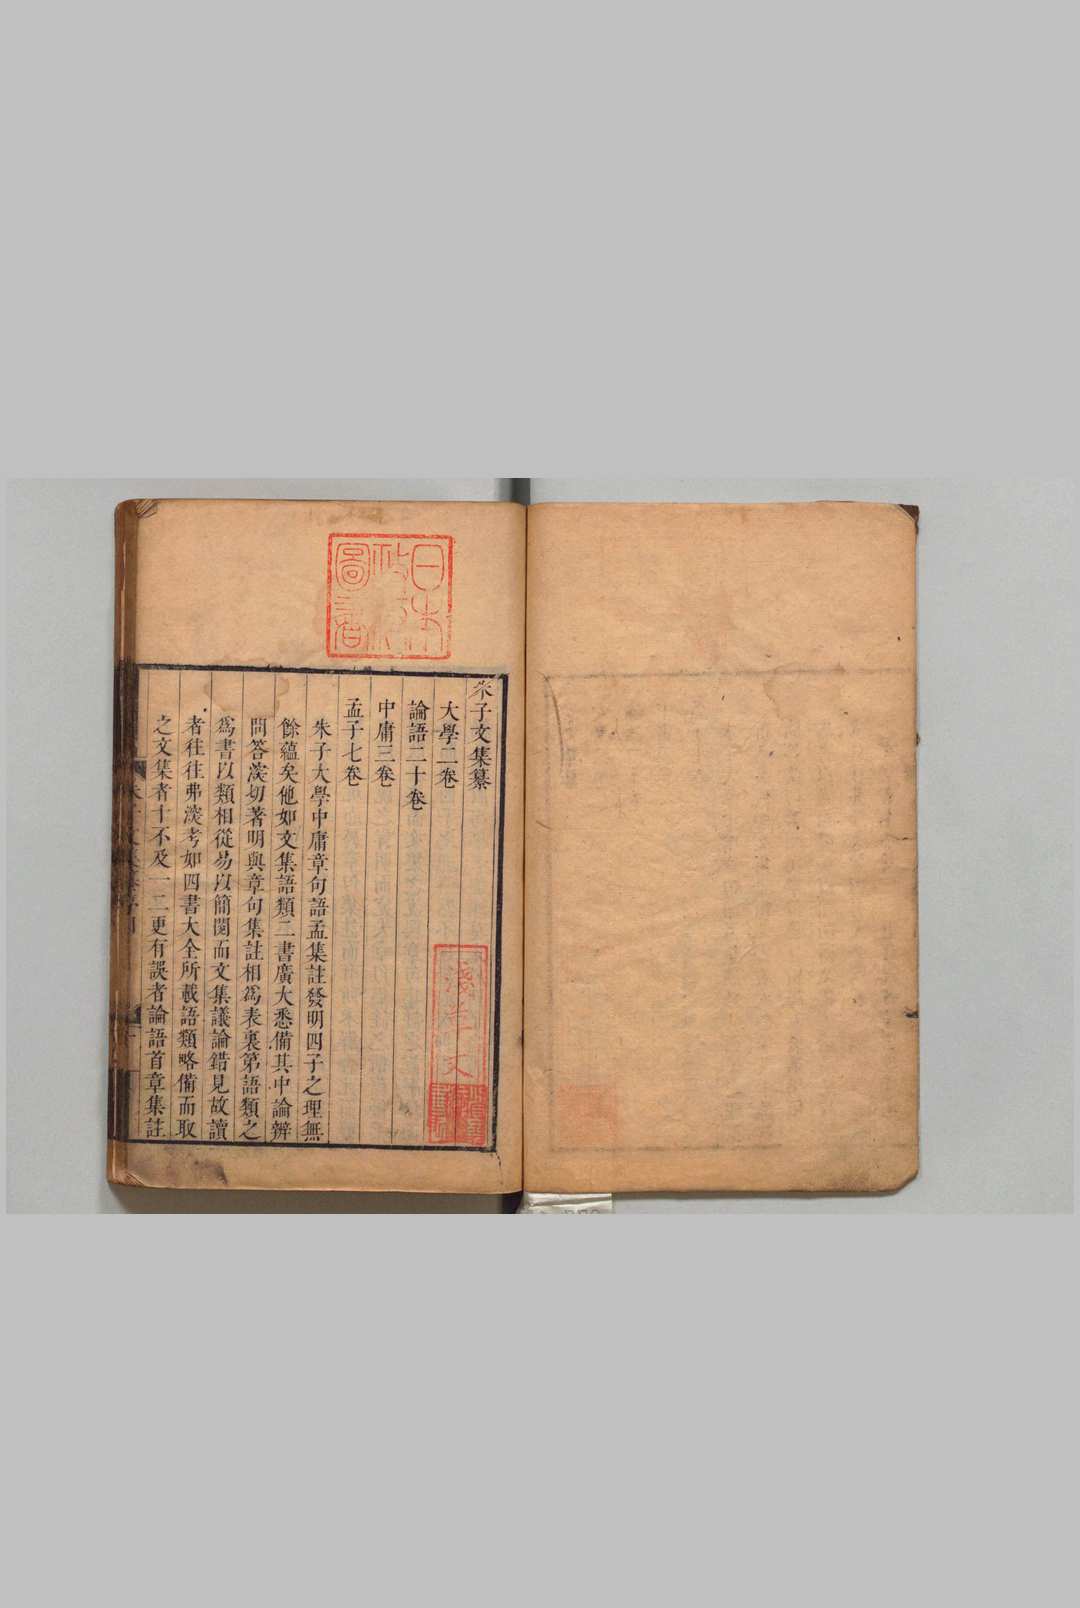 朱子文集纂
大學二卷
論語二十卷
中庸三卷
孟子七卷
朱子大學中庸章句語孟集註發明四子之理無
餘蘊矣他如文集語類二書廣大悉備其中論辨
問答深切著明與章句集註相爲表裏第語類之
爲書以類相從易以簡閱而文集議論錯見故讀
者往往弗深考如四書大全所載語類略備而取
之文集者十不及一二更有誤者論語首章集註
日本
政府
圖書
淺草文庫